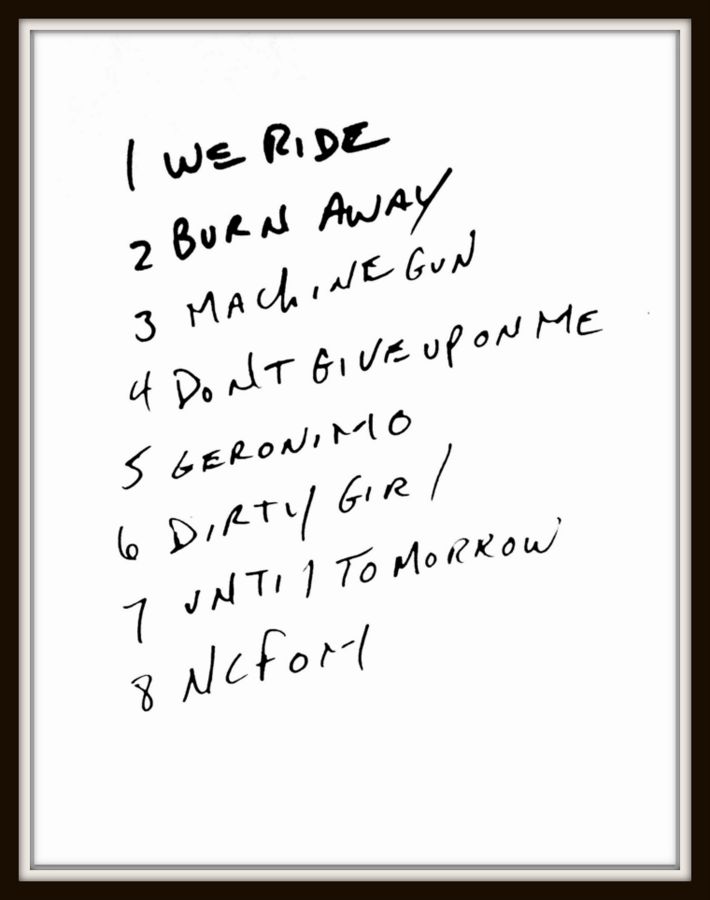 1 WE RIDE
2 BURN AWAY
3 MACHINE GUN
4 DONT GIVE UP ON ME
5 GERONIMO
6 DIRTY GIRl
7 UNTIl TOMORROW
8 NCFOM